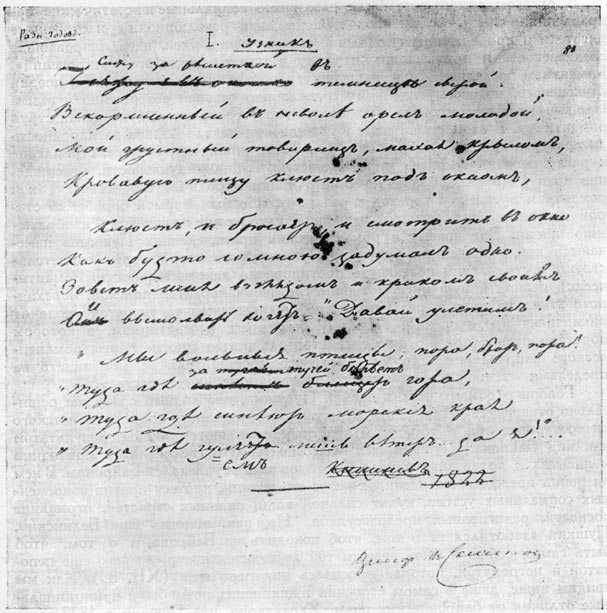 I. Узникъ
Сижу за рѣшеткой въ темницѣ сырой.
Вскормленный въ неволѣ орелъ молодой,
Мой грустный товарищъ, махая крыломъ,
Кровавую пищу клюетъ подъ окномъ,
Клюетъ, и бросаетъ, и смотритъ въ окно
Какъ будто со мною задумалъ одно.
Зоветъ меня взглядомъ и крикомъ своимъ
И вымолвить хочетъ: "Давай улетимъ!
"Мы вольныя птицы; пора, братъ, пора!
за тучей бѣлѣетъ
"Туда гдѣ гора,
"Туда гдѣ синѣютъ морскіе края
"Туда гдѣ гуляемъ лишь вѣтеръ да я!"
Кишиневъ
1822